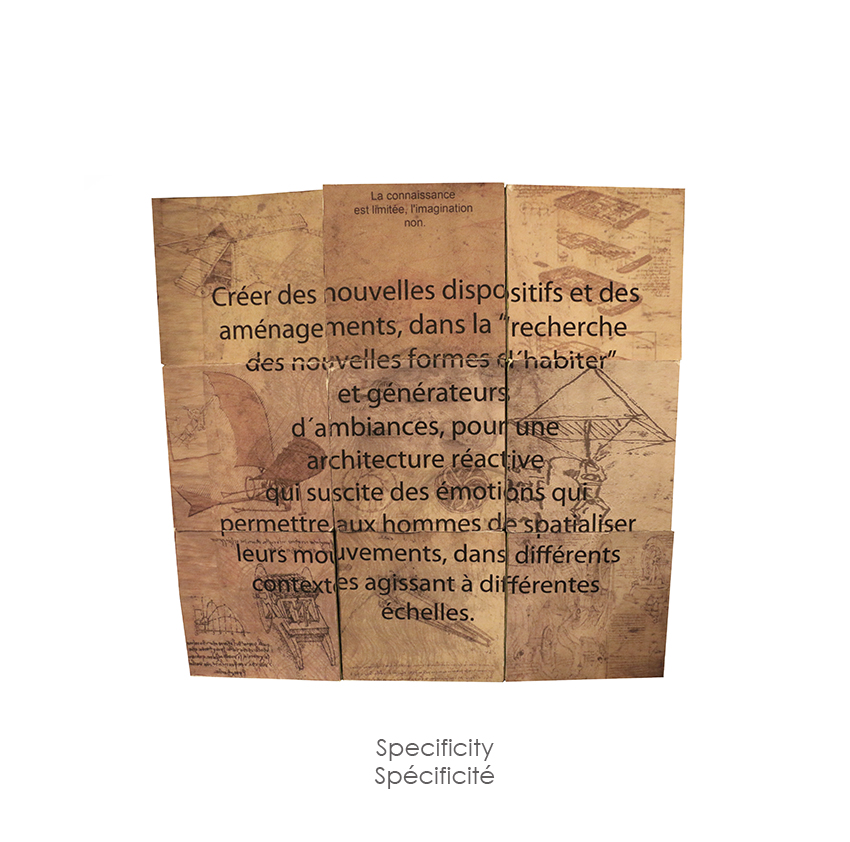 La connaissance
est limitée, l'imagination
non.
Créer des nouvelles dispositifs et des
aménagements, dans la “recherche
des nouvelles formes d´habiter”
et générateurs
d´ambiances, pour une
architecture réactive
qui suscite des émotions qui
permettre aux hommes de spatialiser
leurs mouvements, dans différents
contextes agissant à différentes
échelles.
Specificity
Spécificité